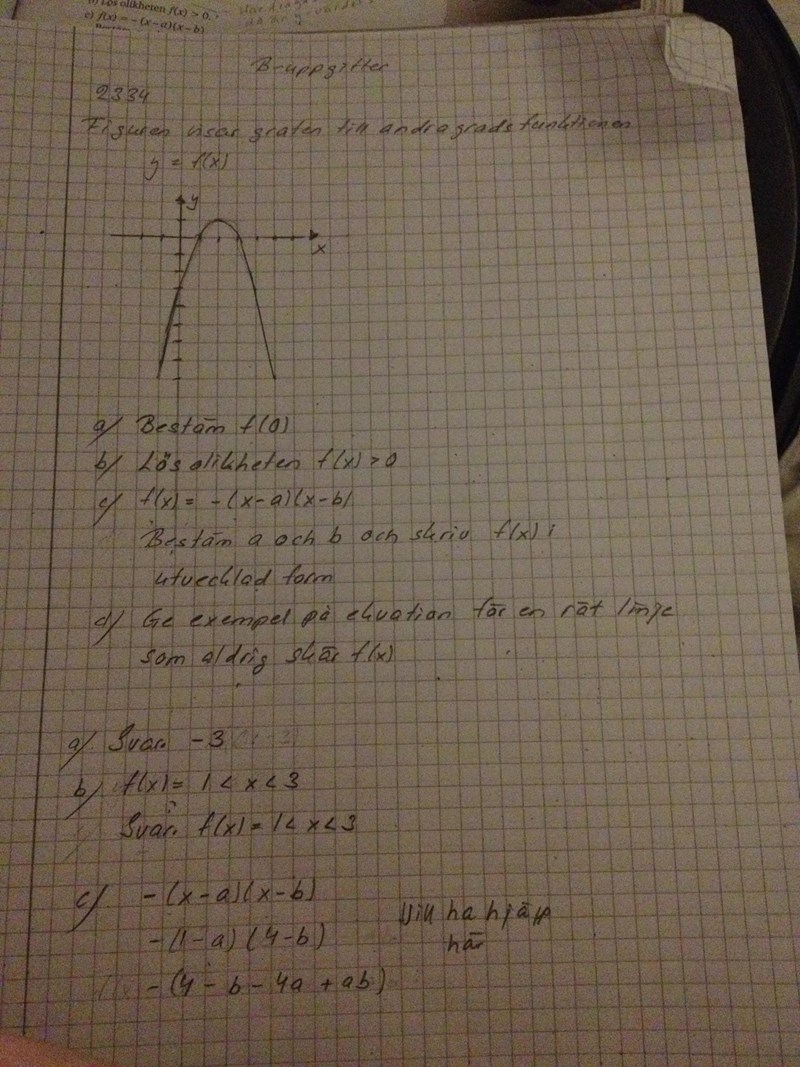 b) Lös olikheten f(x) > 0.
c) f(x) = -(x-a)(x-b)
B-uppgifter
2334
Figuren visar grafen till andragradsfunktionen
y = f(x)
y
x
a) Bestäm f(0)
b) Lös olikheten f(x) > 0
c) f(x) = -(x-a)(x-b)
Bestäm a och b och skriv f(x) i
utvecklad form
d) Ge exempel på ekvation för en rät linje
som aldrig skär f(x)
a) Svar. -3
b) f(x) = 1 < x < 3
Svar. f(x) = 1 < x < 3
c) -(x-a)(x-b)
-(1-a)(4-b)
-(4-b-4a+ab)
Vill ha hjälp
här